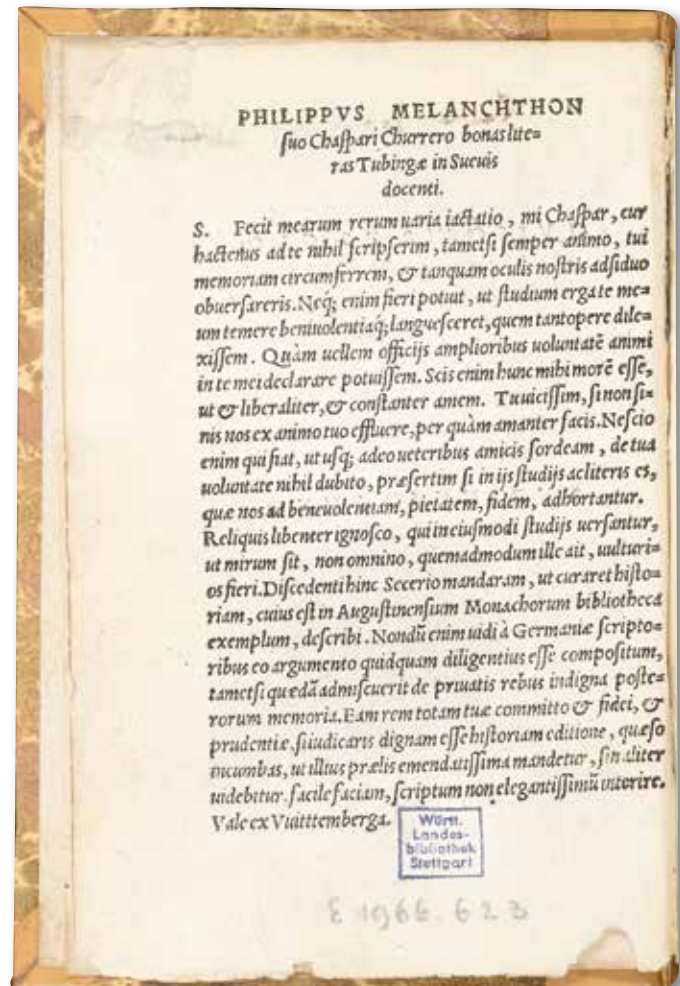 PHILIPPVS MELANCHTHON
suo Chaſpari Churrero bonas lite=
ras Tubingæ in Sueuis
docenti.
S. Fecit mearum rerum uaria iactatio, mi Chaſpar, cur
hactenus ad te nihil ſcripſerim, tametſi ſemper animo, tui
memoriam circumferrem, & tanquam oculis noſtris adſiduo
obuerſareris. Neq; enim fieri potuit, ut ſtudium erga te me=
um temere beniuolentiaq; langueſceret, quem tantopere dile=
xiſſem. Quàm uellem officijs amplioribus uoluntatē animi
in te mei declarare potuiſſem. Scis enim hunc mihi morē eſſe,
ut & liberaliter, & conſtanter amem. Tu uiciſſim, ſi non ſi=
nis nos ex animo tuo effluere, per quàm amanter facis. Neſcio
enim qui fiat, ut uſq; adeo ueteribus amicis ſordeam, de tua
uoluntate nihil dubito, præſertim ſi in ijs ſtudijs ac literis es,
quæ nos ad beneuolentiam, pietatem, fidem, adhortantur.
Reliquis libenter ignoſco, qui in eiuſmodi ſtudijs uerſantur,
ut mirum ſit, non omnino, quemadmodum ille ait, uulturi=
os fieri. Diſcedenti hinc Secerio mandaram, ut curaret hiſto=
riam, cuius eſt in Auguſtinenſium Monachorum bibliotheca
exemplum, deſcribi. Nondū enim uidi à Germaniæ ſcripto=
ribus eo argumento quidquam diligentius eſſe compoſitum,
tametſi quædā admiſcuerit de priuatis rebus indigna poſte=
rorum memoria. Eam rem totam tuæ committo & fidei, &
prudentiæ. ſi iudicaris dignam eſſe hiſtoriam editione, quæſo
incumbas, ut illius prælis emendatiſſima mandetur, ſin aliter
uidebitur. facile faciam, ſcriptum non elegantiſſimū interire.
Vale ex Vuitttemberga.
Württ.
Landes-
bibliothek
Stuttgart
E 1966. 623